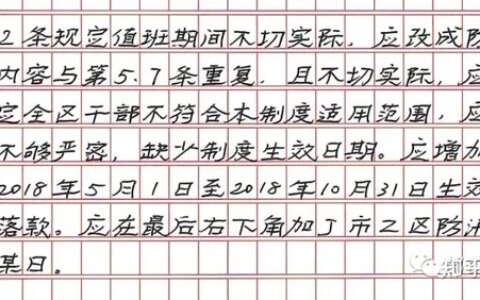 2条规定值班期间不切实际，应改成防
内容与第5.7条重复，且不切实际，应
定全区干部不符合本制度适用范围，应
不够严密，缺少制度生效日期。应增加
2018年5月1日至2018年10月31日生效
落款。应在最后右下角加J市Z区防汛
某日。
知乎